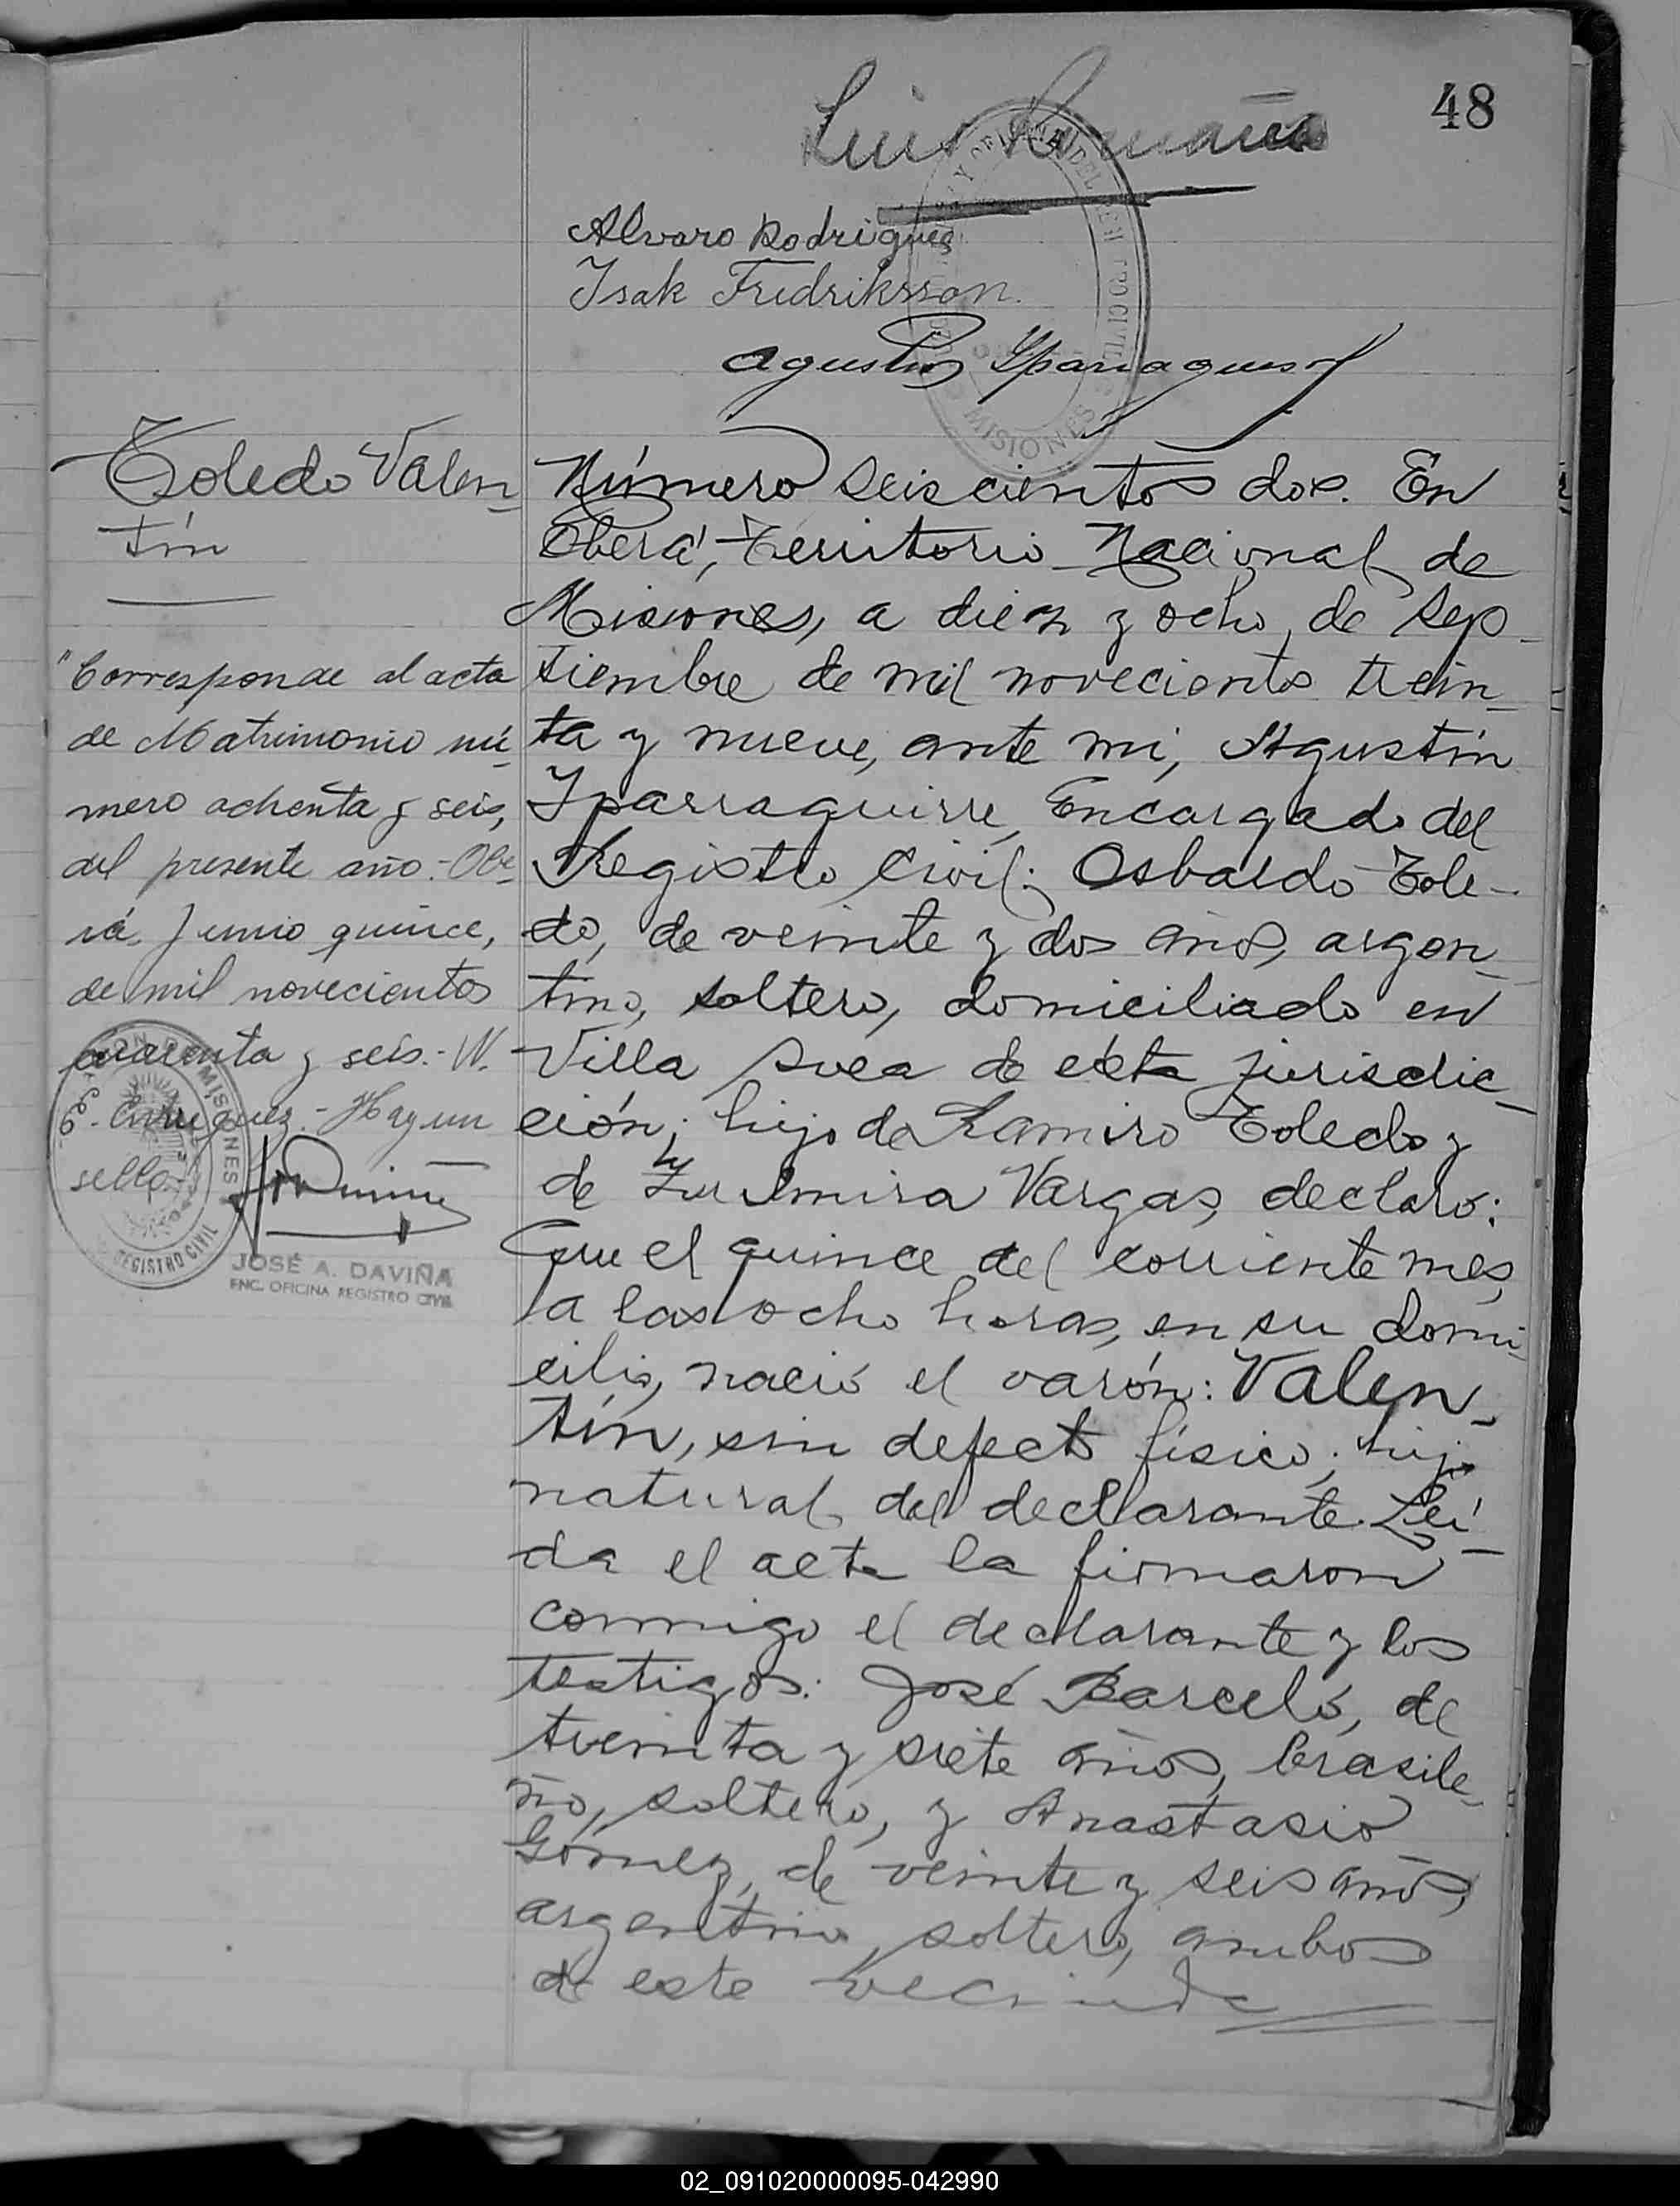 48
Luis
Alvaro Rodrigues
Isak Fredriksson.
Agustin Yparraguirre
MISIONES
Toledo Valen-
tín
"Corresponde al acta
de Matrimonio nú-
mero ochenta y seis,
del presente año.- Obe-
rá, Junio quince,
de mil novecientos
cuarenta y seis.- W.
Enriquez.- Hay un
sello
MISIONES
REGISTRO CIVIL
JOSÉ A. DAVIÑA
ENC. OFICINA REGISTRO CIVIL
Número seiscientos dos. En
Oberá, Territorio Nacional de
Misiones, a diez y ocho de Sep-
tiembre de mil novecientos trein-
ta y nueve, ante mi, Agustín
Iparraguirre, Encargado del
Registro Civil: Osbaldo Tole-
do, de veinte y dos años, argen-
tino, soltero, domiciliado en
Villa Svea de esta jurisdic-
ción; hijo de Ramiro Toledo y
de Zulmira Vargas, declaró:
Que el quince del corriente mes,
a las ocho horas, en su domi-
cilio, nació el varón: Valen-
tín, sin defecto físico; hijo
natural del declarante. Leí-
da el acta la firmaron
conmigo el declarante y los
testigos: José Barceló, de
treinta y siete años, brasile-
ño, soltero, y Anastasio
Gómez, de veinte y seis años,
argentino, soltero, ambos
de este vecinda
02_091020000095-042990